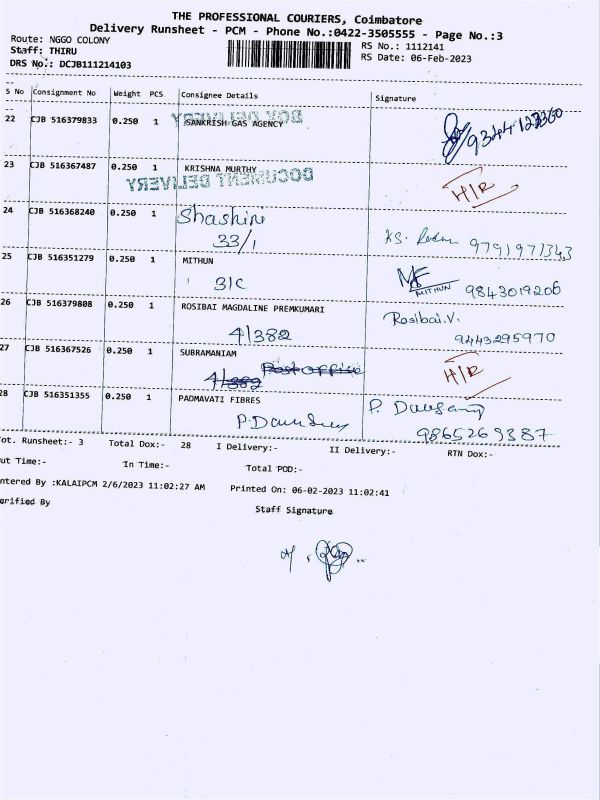 THE PROFESSIONAL COURIERS, Coimbatore
Delivery Runsheet - PCM - Phone No.:0422-3505555 - Page No.:3
Route: NGGO COLONY
RS No.: 1112141
Staff: THIRU
RS Date: 06-Feb-2023
DRS No.: DCJB111214103
S No Consignment No Weight PCS Consignee Details Signature
22 CJB 516379833 0.250 1 SANKRISH GAS AGENCY
BOX DELIVERY
23 CJB 516367487 0.250 1 KRISHNA MURTHY H/R
DOCUMENT DELIVERY
24 CJB 516368240 0.250 1 Shashini
33/1 9791971343
25 CJB 516351279 0.250 1 MITHUN
31C MITHUN 9843019206
26 CJB 516379808 0.250 1 ROSIBAI MAGDALINE PREMKUMARI Rosibai.V.
4/382 9443295970
27 CJB 516367526 0.250 1 SUBRAMANIAM H/R
4/382 Post office
28 CJB 516351355 0.250 1 PADMAVATI FIBRES
9865269387
ot. Runsheet:- 3 Total Dox:- 28 I Delivery:- II Delivery:- RTN Dox:-
ut Time:- In Time:- Total POD:-
ntered By :KALAIPCM 2/6/2023 11:02:27 AM Printed On: 06-02-2023 11:02:41
erified By Staff Signature